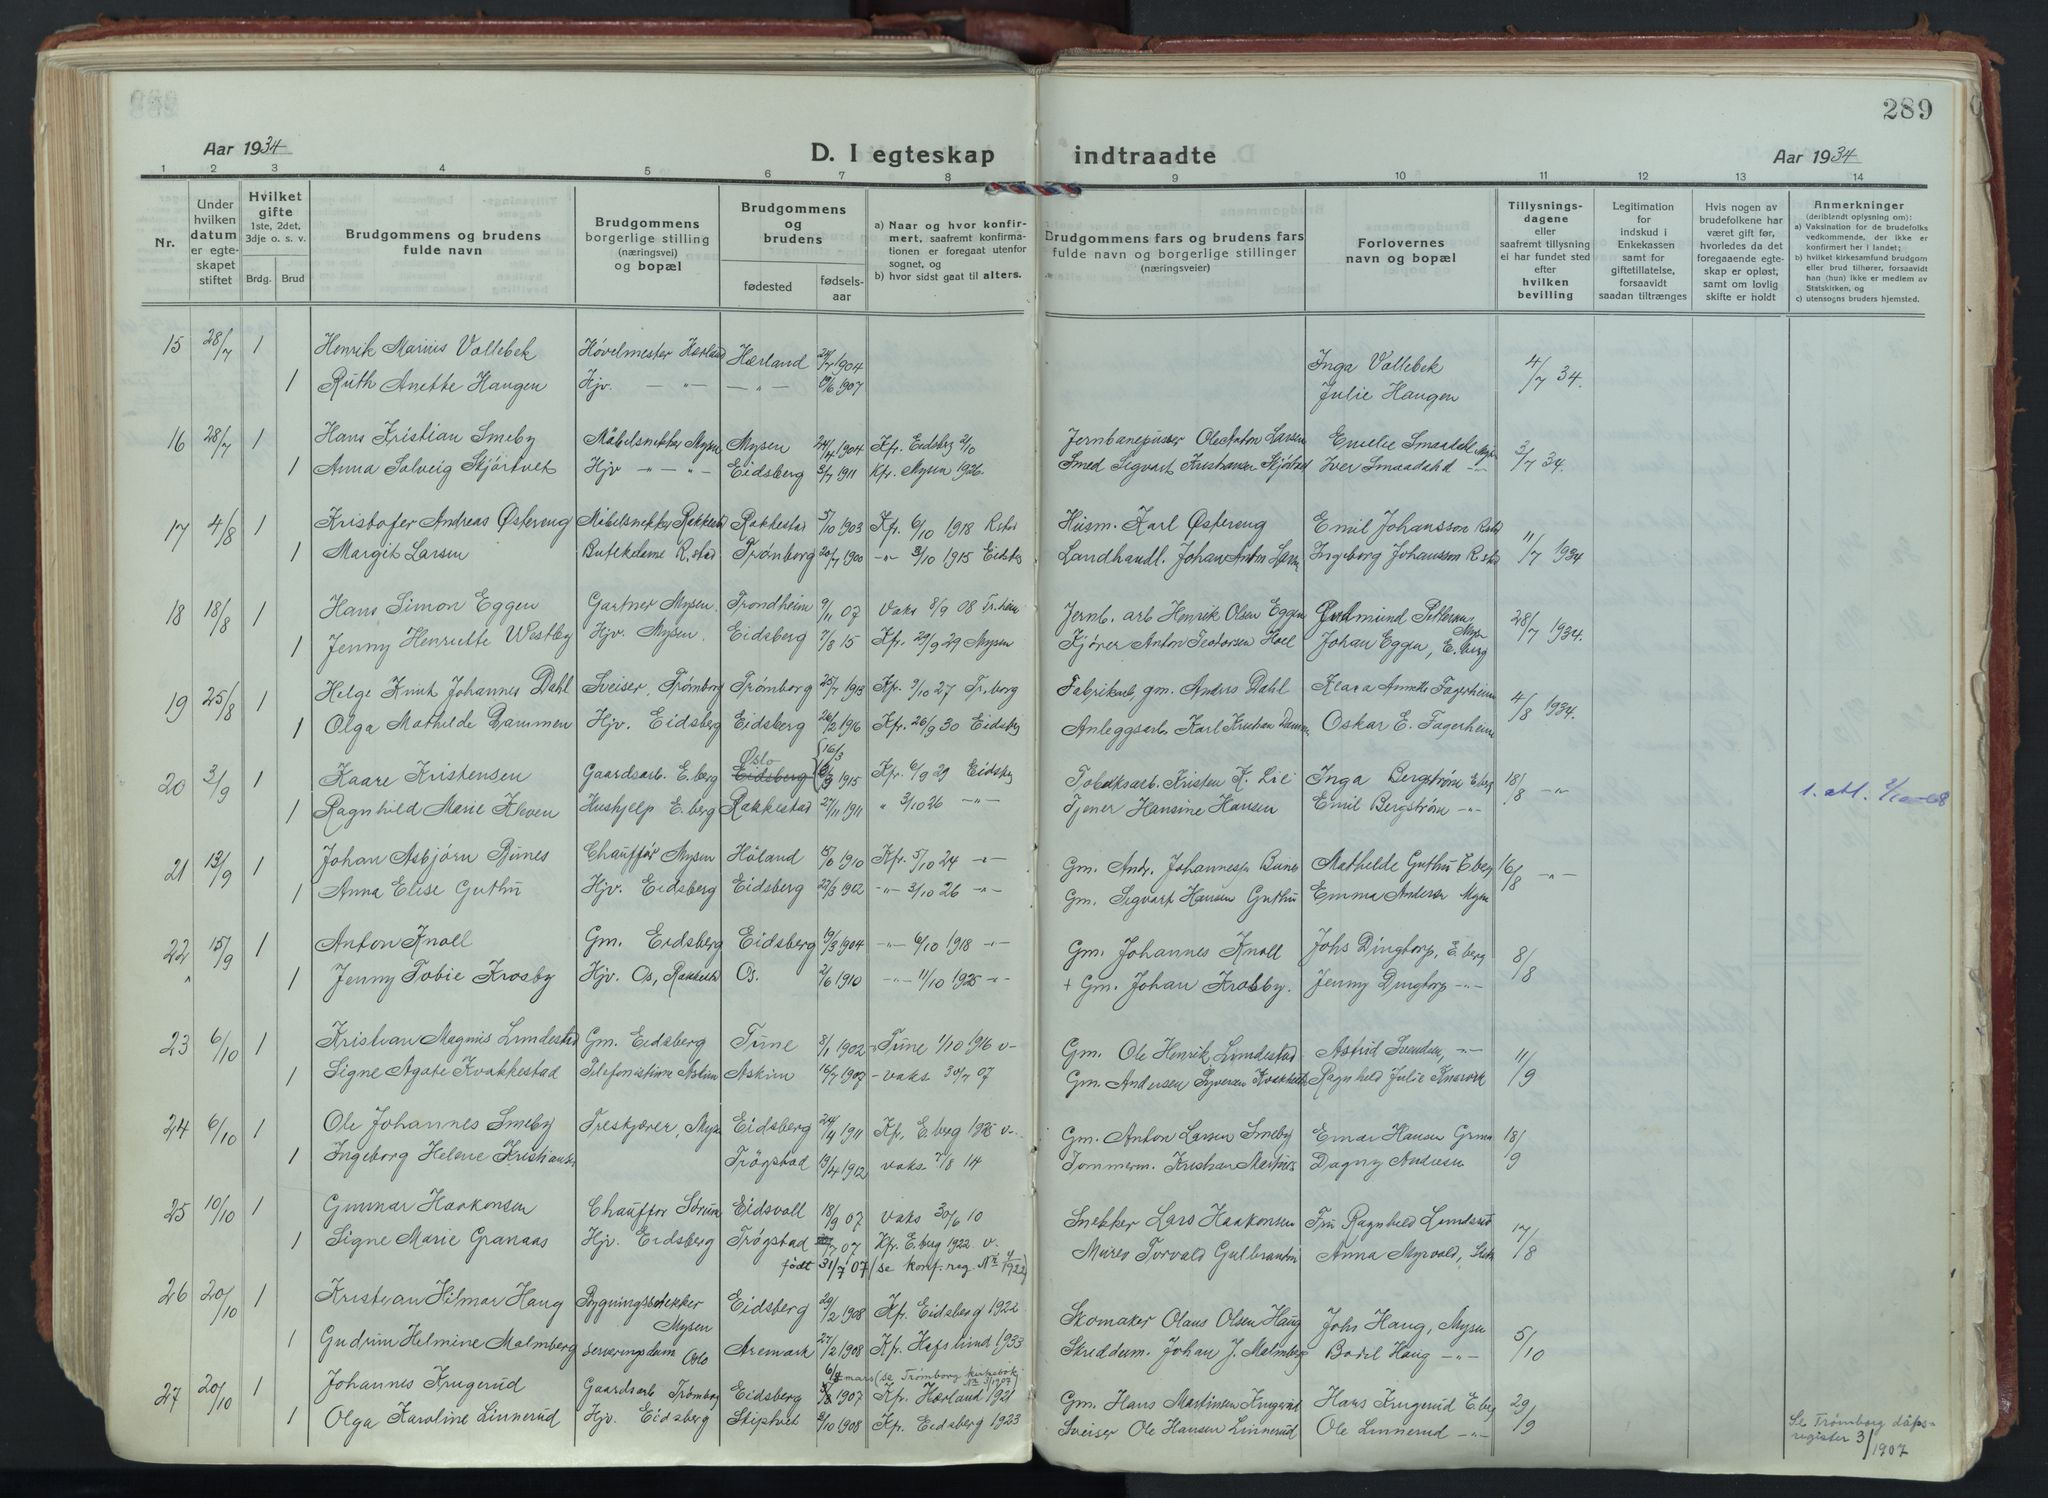 289
Aar 1934
D. I egteskap indtraadte
Aar 1934
1 2 3 4 5 6 7 8 9 10 11 12 13 14
Nr.
Under hvilken datum er egteskapet stiftet
Hvilket gifte 1ste, 2det, 3dje o. s. v.
Brdg. Brud
Brudgommens og brudens fulde navn
Brudgommens borgerlige stilling (næringsvei) og bopæl
Brudgommens og brudens
fødested
fødselsaar
a) Naar og hvor konfirmert, saafremt konfirmationen er foregaat utenfor sognet, og
b) hvor sidst gaat til alters.
Brudgommens fars og brudens fars fulde navn og borgerlige stillinger (næringsveier)
Forlovernes navn og bopæl
Tillysningsdagene eller saafremt tillysning ei har fundet sted efter hvilken bevilling
Legitimation for indskud i Enkekassen samt for giftetillatelse, forsaavidt saadan tiltrænges
Hvis nogen av brudefolkene har været gift før, hvorledes da det foregaaende egteskap er opløst, samt om lovlig skifte er holdt
Anmerkninger (deriblendt oplysning om):
a) Vaksination for de brudefolks vedkommende, der ikke er konfirmert her i landet;
b) hvilket kirkesamfund brudgom eller brud tilhører, forsaavidt han (hun) ikke er medlem av Statskirken, og
c) utensogns bruders hjemsted.
15 28/7 1 Henrik Marius Vallebek Høvelmester Hærland Hærland 1904 Inga Vallebek 4/7 34.
1 Ruth Anette Haugen Hjv. — " — — " — 1907 Julie Haugen
16 28/7 1 Hans Kristian Smeby Møbelsnekker Mysen Mysen 24/4 1904 Kfr. Eidsberg 2/10 Jernbanepusser Ole Anton Larsen Emelie Smaadahl Mysen 3/7 34.
1 Anna Solveig Skjørtvet Hjv — " — " — Eidsberg 5/7 1911 Kfr. Mysen 1926. Smed Sigvart Kristiansen Iver Smaadahl — " —
17 4/8 1 Kristofer Andreas Østereng Møbelsnekker Rakkestad Rakkestad 5/10 1903 Kfr. 6/10 1918 R.stad Husm. Karl Østereng Emil Johansson R.stad 11/7 1934
1 Margit Larsen Butikdame R.stad Trømborg 20/7 1900 — " — 3/10 1915 Eidsbg Landhandl. Johan Anton Larsen Ingeborg Johansson R.stad
18 18/8 1 Hans Simon Eggen Gartner Mysen. Trondheim 9/11 07 Vaks 8/9 08 Tr.heim Jernb. arb Henrik Olsen Eggen Gudmund Pettersen Mysen 28/7 1934.
1 Jenny Henriette Westby Hjv. Mysen. Eidsberg 7/8 15 Kfr. 29/9 29 Mysen Kjører Anton Teodorsen Hoel Johan Eggen, E.berg
19 25/8 1 Helge Knut Johannes Dahl Sveiser, Trømborg Trømborg 25/7 1913 Kfr. 9/10 27 Tr.borg Fabrikarb, gm. Anders Dahl Klara Annette Fagerheim 4/8 1934.
1 Olga Mathilde Dammen Hjv. Eidsberg Eidsberg 26/2 1916 Kfr. 26/9 30 Eidsbg Anleggsarb. Karl Kristian Dammen Oskar E. Fagerheim
20 3/9 1 Kaare Kristensen Gaardsarb. E.berg Oslo Eidsberg 16/3 1915 Kfr. 6/9 29 Eidsbg Tobaksarb. Kristen K. Lie Inga Bergstrøm E.berg 18/8 — " — 1. att.
1 Ragnhild Marie Kleven Hushjelp E.berg Rakkestad 27/11 1911 " 3/10 26 — " — Tjener Hansine Hansen Emil Bergstrøm — " —
21 13/9 1 Johan Asbjørn Bunes Chauffør Mysen Høland 1910 Kfr. 5/10 24 — " — Gm. Andr. Johannessen Bunes Mathilde Guthu E.berg 16/8 — " —
1 Anna Elise Guthu Hjv. Eidsberg Eidsberg 22/3 1912 — " — 3/10 26 — " — Gm. Segvart Hansen Guthu Emma Andersen Mysen
22 15/9 1 Anton Knoll Gm. Eidsberg Eidsberg 19/3 1904 — " — 6/10 1918 — " — Gm. Johannes Knoll Johs Dingtorp, E.berg 8/8
" 1 Jenny Tobie Krosby Hjv. Os, Rakkestad Os. 2/6 1910 — " — 11/10 1925 — " — + Gm. Johan Krosby. Jenny Dingtorp — " —
23 6/10 1 Kristian Magnus Lundestad Gm. Eidsberg Tune 8/1 1902 Tune 1/10 1916 v- Gm. Ole Henrik Lundestad Astrid Svendsen, — " — 11/9
1 Signe Agate Kvakkestad Telefonistinne Askim Askim 16/7 1907 - vaks 30/7 07 Gm. Andersen Syversen Kvakkestad Ragnhild Julie
24 6/10 1 Ole Johannes Smeby Treskjærer, Mysen Eidsberg 24/4 1911 Kfr. E.berg 1925 v- Gm. Anton Larsen Smeby Einar Hansen 18/9
1 Ingeborg Helene Kristiansen Trøgstad 19/4 1912 vaks 7/8 14 Tømmerm. Kristian Martines Dagny Andresen
25 10/10 1 Gunnar Haakonsen Chauffør Sørum Eidsvoll 18/9 07 vaks 30/6 10 Snekker Lars Haakonsen Fru Ragnhild Lundsrud 17/8
1 Signe Marie Granaas Hjv. Eidsberg Trøgstad 7 07 Kfr. E.berg 1922 v. Murer Torvald Gulbrandsen Anna Myrvold,
født 31/7 07 (se konf.reg. Nr. 4/1922)
26 20/10 1 Kristian Hilmar Haug Bygningssnekker Mysen Eidsberg 29/2 1908 Kfr. Eidsberg 1922 Skomaker Olaus Olsen Haug Johs Haug, Mysen 5/10
1 Gudrun Helmine Malmberg Serveringsdam Oslo Aremark 27/2 1908 Kfr. Hafslund 1933 Skreddem. Johan J. Malmberg Bodil Haug — " —
6/3 mars (se Trømborg kirkebok Nr 3/1907)
27 20/10 1 Johannes Krugerud Gaardsarb Trømborg Eidsberg 1907 Kfr. Hærland 1921 Gm. Hans Martinsen Krugerud Hans Krugerud E.berg 29/9
1 Olga Karoline Linnerud Hjv. Eidsberg Skiptvet 2/10 1908 Kfr. Eidsberg 1923 Sveiser Ole Hansen Linnerud Ole Linnerud — " —
Se Trømborg dåpsregister 3/1907